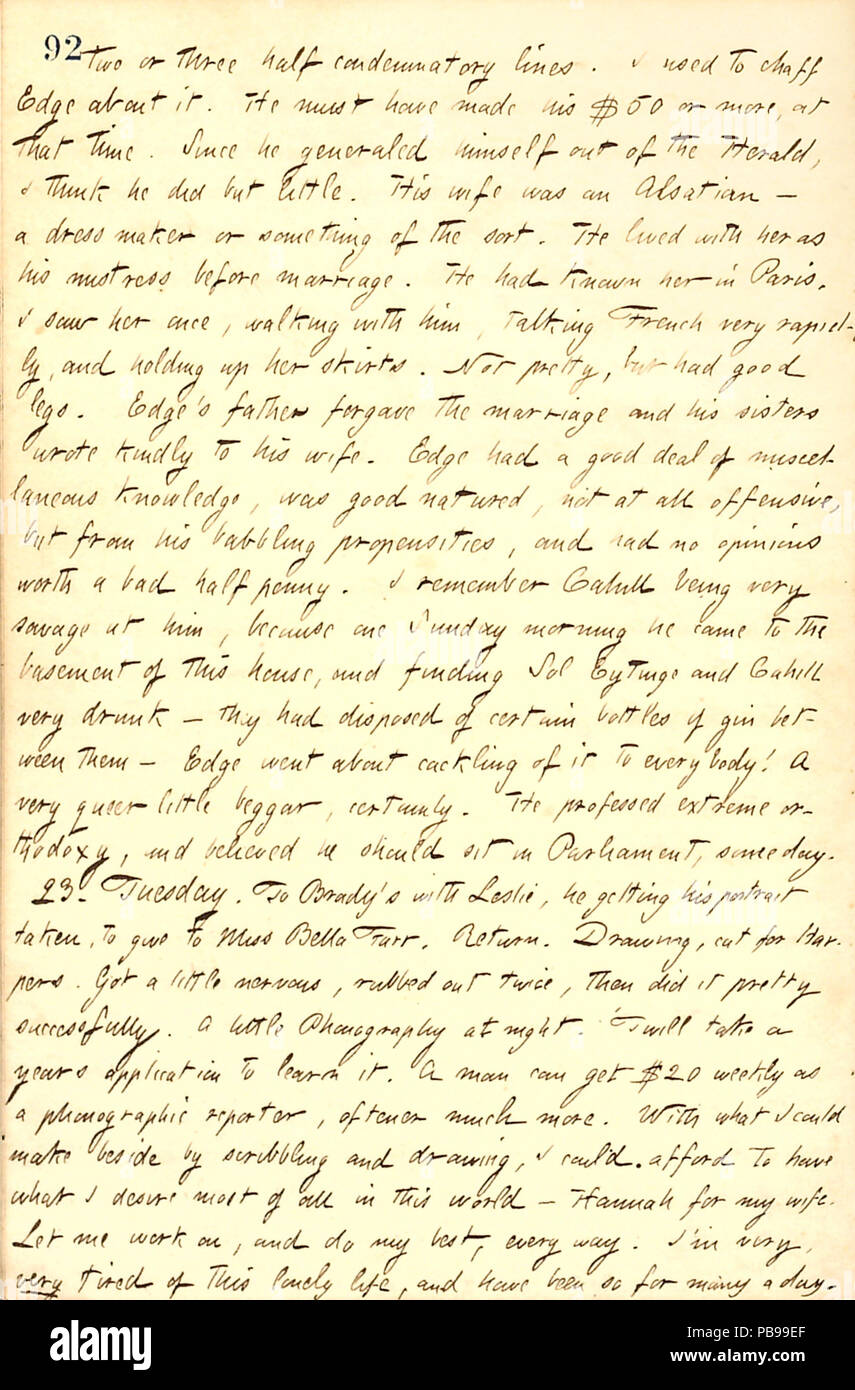 92
two or three half condemnatory lines. I used to chaff
Edge about it. He must have made his $50 or more, at
that time. Since he generaled himself out of the Herald,
I think he did but little. His wife was an Alsatian —
a dress maker or something of the sort. He lived with her as
his mistress before marriage. He had known her in Paris.
I saw her once, walking with him, talking French very rapid-
ly, and holding up her skirts. Not pretty, but had good
legs. Edge's father forgave the marriage and his sisters
wrote kindly to his wife. Edge had a good deal of miscel-
laneous knowledge, was good natured, not at all offensive,
but from his babbling propensities, and had no opinions
worth a bad half penny. I remember Cahill being very
savage at him, because one Sunday morning he came to the
basement of this house, and finding Sol Eytinge and Cahill
very drunk — they had disposed of certain bottles of gin bet-
ween them — Edge went about cackling of it to everybody! A
very queer little beggar, certainly. He professed extreme or-
thodoxy, and believed he should sit in Parliament, some day.
23. Tuesday. To Brady's with Leslie, he getting his portrait
taken, to give to Miss Bella Farr. Return. Drawing, cut for Har-
pers. Got a little nervous, rubbed out twice, then did it pretty
successfully. A little Phonography at night. 'Twill take a
years application to learn it. A man can get $20 weekly as
a phonographic reporter, oftener much more. With what I could
make beside by scribbling and drawing, I could afford to have
what I desire most of all in this world — Hannah for my wife.
Let me work on, and do my best, every way. I'm very,
very tired of this lonely life, and have been so for many a day.
alamy
Image ID: PB99EF
www.alamy.com